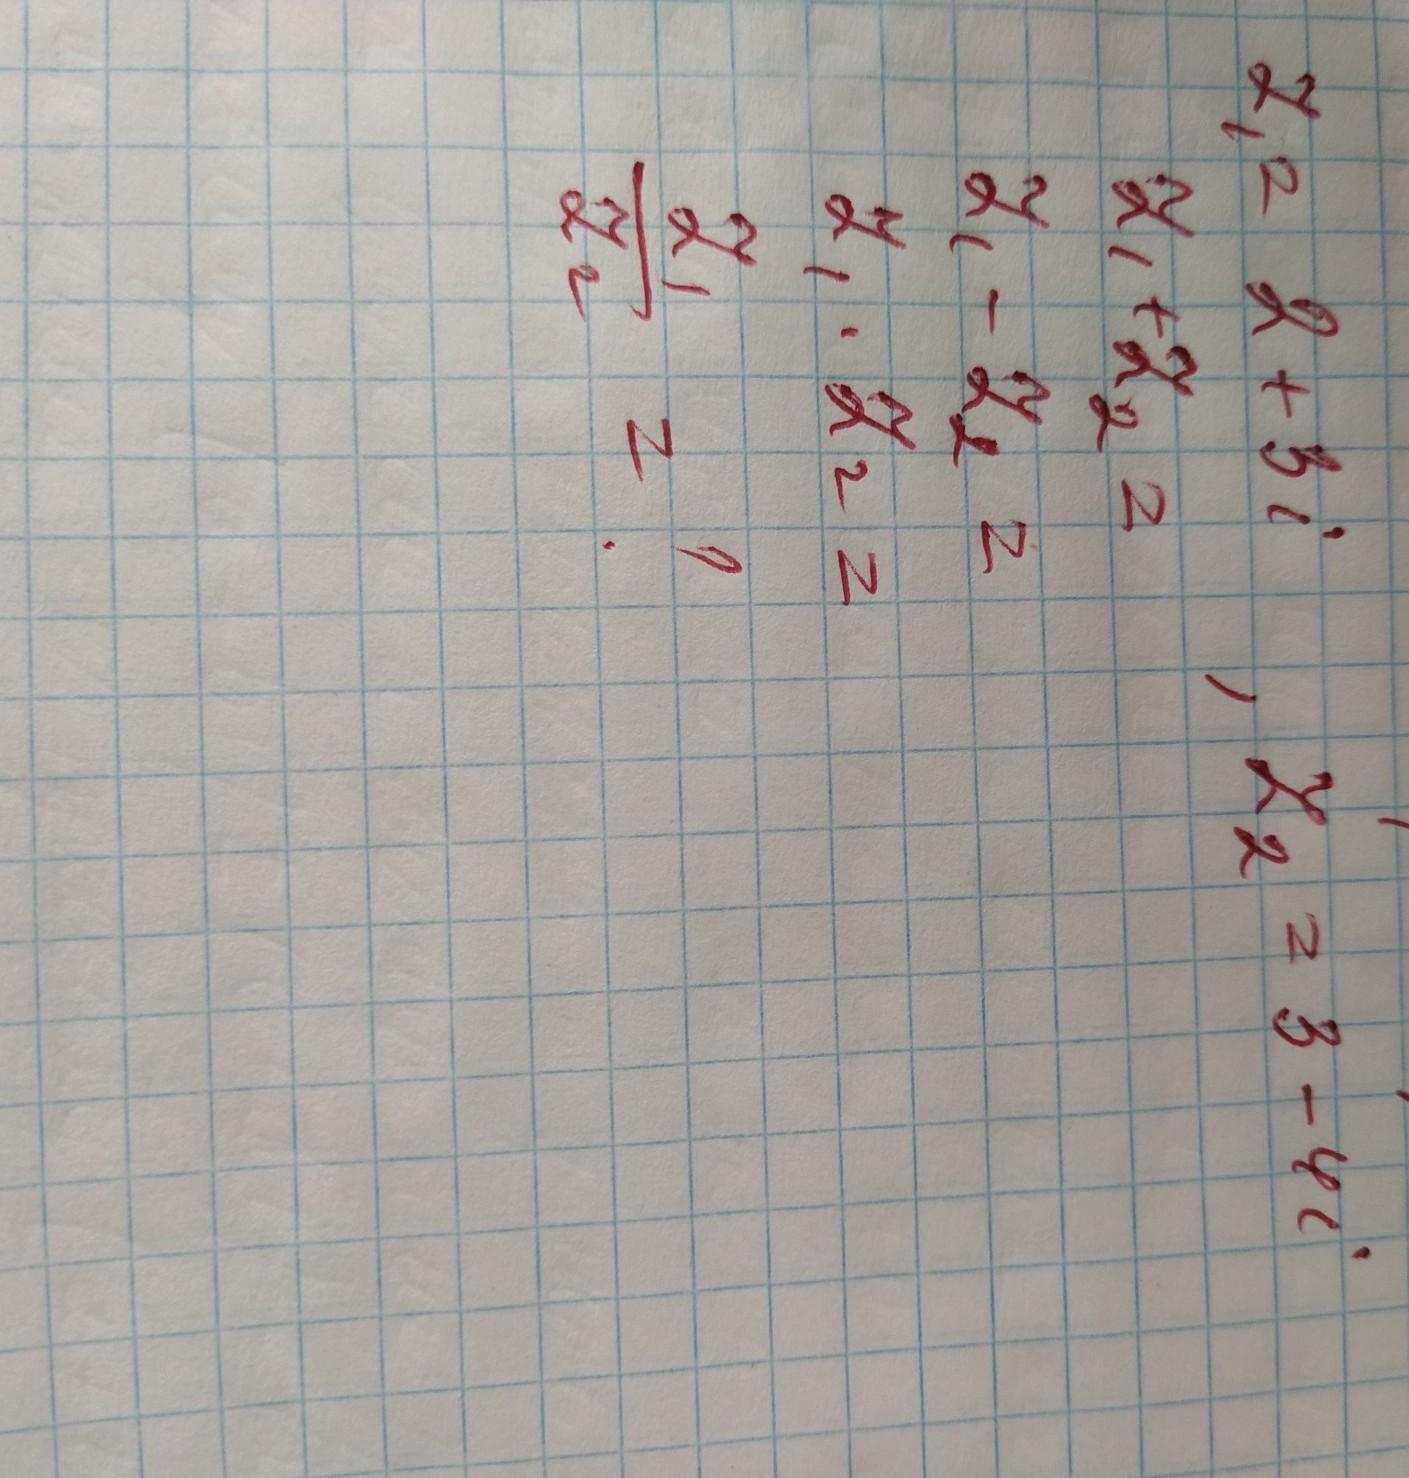 z₁ = 2 + 3i , z₂ = 3 - 4i
z₁ + z₂ =
z₁ - z₂ =
z₁ · z₂ =
z₁
z₂ = ?